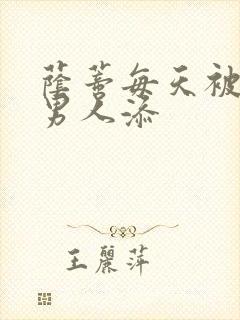 蔭蒂每天被
男人添
王麗萍